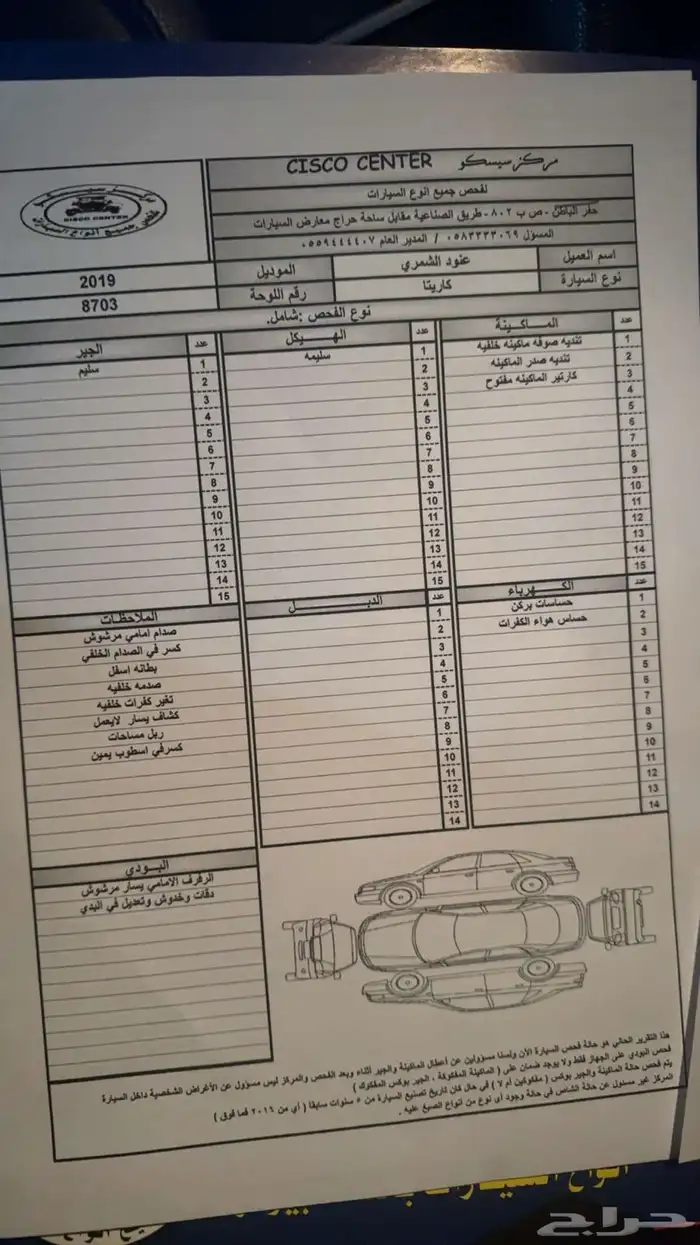 مركز سيسكو CISCO CENTER
لفحص جميع انوع السيارات
حفر الباطن - ص ب ٨٠٢ - طريق الصناعية مقابل ساحة حراج معارض السيارات
المسؤل ٠٥٨٣٣٣٣٠٦٩ / المدير العام ٠٥٥٩٤٤٤٤٠٧
CISCO CENTER
اسم العميل عنود الشمري الموديل 2019
نوع السيارة كاريتا رقم اللوحة 8703
نوع الفحص :شامل.
عدد الماكينة
1 تنديه صوفه ماكينه خلفيه
2 تنديه صدر الماكينه
3 كارتير الماكينه مفتوح
4
5
6
7
8
9
10
11
12
13
14
15
عدد الهيكل
1 سليمه
2
3
4
5
6
7
8
9
10
11
12
13
14
15
عدد الجير
1 سليم
2
3
4
5
6
7
8
9
10
11
12
13
14
15
عدد الكهرباء
1 حساسات بركن
2 حساس هواء الكفرات
3
4
5
6
7
8
9
10
11
12
13
14
عدد الدبل
1
2
3
4
5
6
7
8
9
10
11
12
13
14
الملاحظات
صدام امامي مرشوش
كسر في الصدام الخلفي
بطانه اسفل
صدمه خلفيه
تغير كفرات خلفيه
كشاف يسار لايعمل
ربل مساحات
كسرفي اسطوب يمين
البودي
الرفرف الامامي يسار مرشوش
دقات وخدوش وتعديل في البدي
هذا التقرير الحالي هو حالة فحص السيارة الآن ولسنا مسؤولين عن أعطال الماكينة والجير أثناء وبعد الفحص والمركز ليس مسؤول عن الأغراض الشخصية داخل السيارة
فحص البودي على الجهاز فقط ولا يوجد ضمان على ( الماكينة المفكوكة ، الجير بوكس المفكوك )
يتم فحص حالة الماكينة والجير بوكس ( مفكوكين أم لا ) في حال كان تاريخ تصنيع السيارة من ٥ سنوات سابقاً ( أي من ٢٠١٦ فما فوق )
المركز غير مسئول عن حالة الشاص في حالة وجود أي نوع من أنواع الصبغ عليه .
أنواع السيارات
حراج